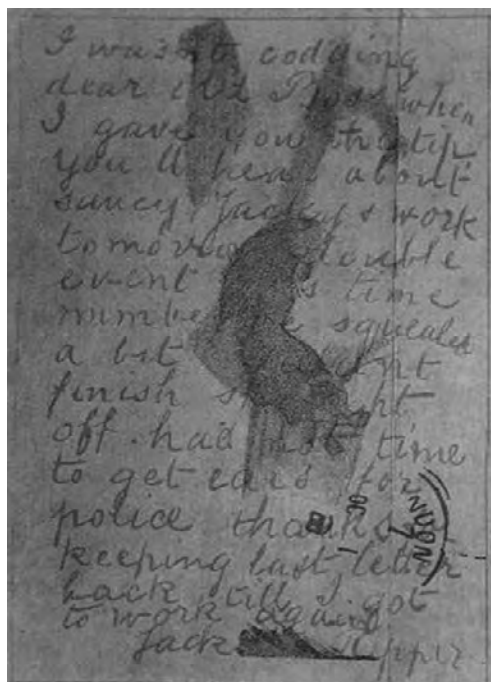 I wasnt codding
dear old Boss when
I gave you the tip,
you'll hear about
saucy Jacky s work
tomorrow double
event time
number squealed
a bit
finish
off. had not time
to get ears for
police thanks
keeping last letter
back till I got
to work again.
Jack Ripper
OC 1